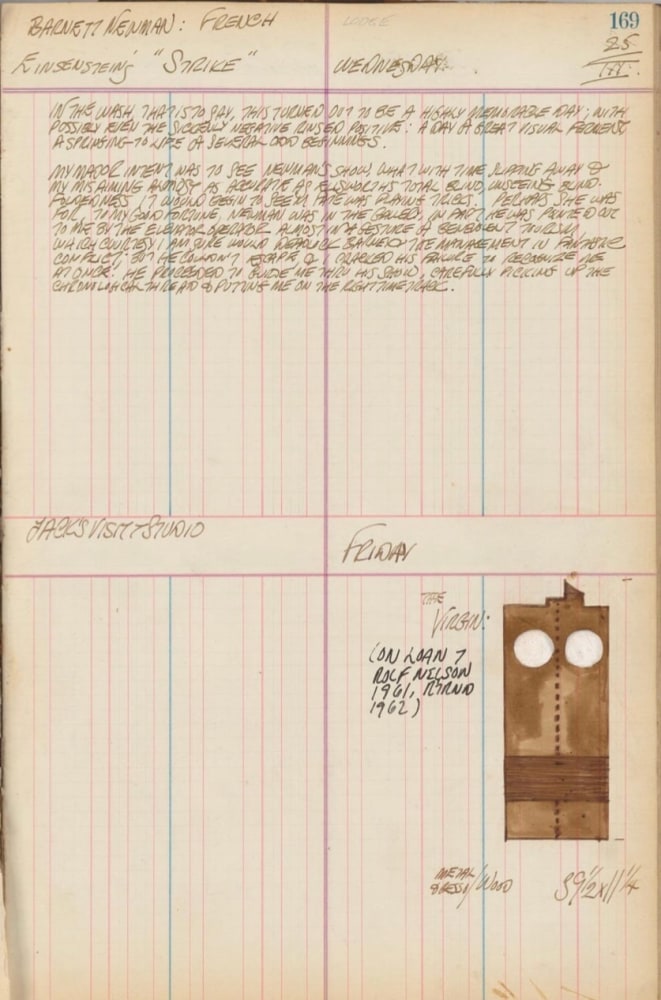 BARNETT NEWMAN: FRENCH
LODGE
169
25
III.
EINSENSTEIN'S "STRIKE"
WEDNESDAY.
IN THE WASH, THAT IS TO SAY, THIS TURNED OUT TO BE A HIGHLY MEMORABLE DAY; WITH
POSSIBLY EVEN THE SUDDENLY NEGATIVE RINSED POSITIVE: A DAY OF GREAT VISUAL FERMENT
A SPRINGING-TO-LIFE OF SEVERAL ODD BEGINNINGS.
MY MAJOR INTENT WAS TO SEE NEWMAN'S SHOW, WHAT WITH TIME SLIPPING AWAY &
MY MISAIMING ALMOST AS ACCURATE AS ELLSWORTH'S TOTAL BLIND, UNSEEING BLIND.
IT WOULD BEGIN TO SEEM FATE WAS PLAYING TRICKS. PERHAPS SHE WAS
FOR, TO MY GOOD FORTUNE, NEWMAN WAS IN THE GALLERY, IN PART HE WAS POINTED OUT
TO ME BY THE ELEVATOR OPERATOR ALMOST IN A GESTURE OF BENEVOLENT TOURISM,
WHICH COURTESY I AM SURE WOULD DEADLOCK BARNEY & THE MANAGEMENT IN FANTASTIC
CONFLICT; BUT HE COULDN'T ESCAPE, & I CRACKED HIS FAILURE TO RECOGNIZE ME
AT ONCE. HE PROCEEDED TO GUIDE ME THRU HIS SHOW, CAREFULLY PICKING UP THE
CHRONOLOGICAL THREAD & PUTTING ME ON THE RIGHT TIME TRACK.
JACK'S VISIT T STUDIO
FRIDAY
THE
VIRGIN:
(ON LOAN T
ROLF NELSON
1961, RTRND
1962)
METAL
GESSO/WOOD
39 1/2 x 11 1/4